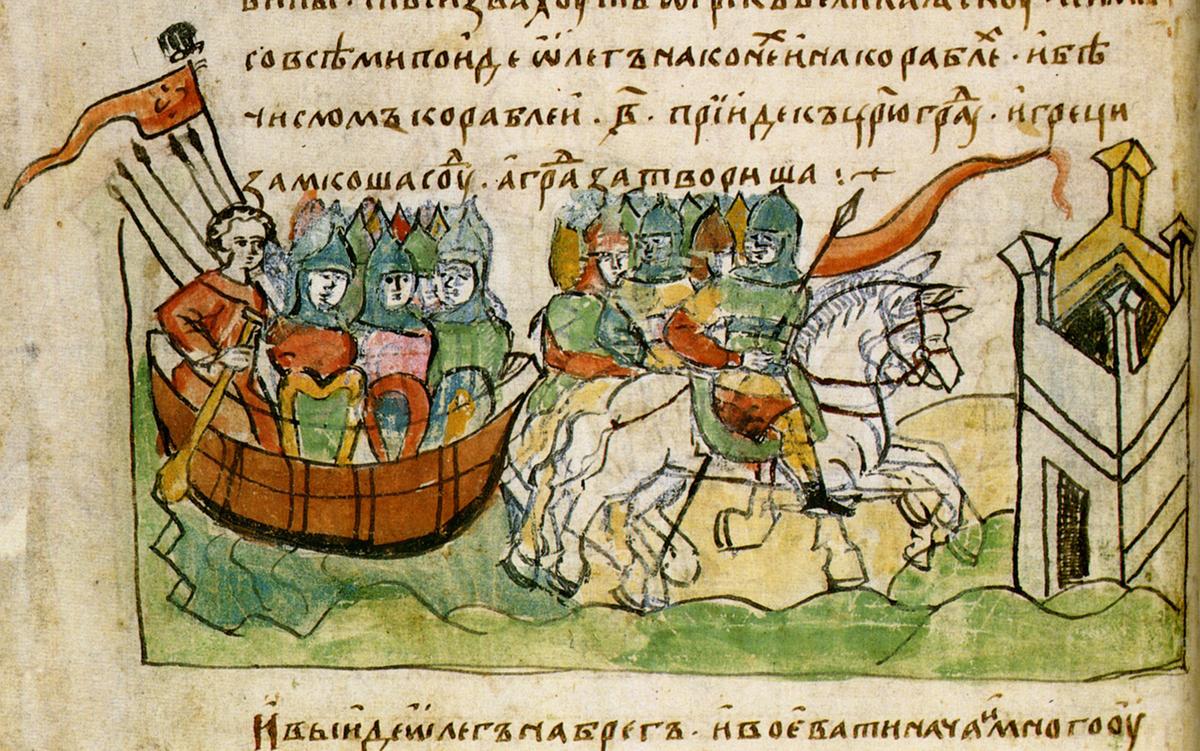 со всѣми поиде ѡлегъ на кон҃еⷯ и на корабле҃ⷯ · и бѣ
числомъ кораблеи · в҃ · прїиде къ цр҃ю граⷣ · и греци
замкоша соуⷣ · а граⷣ затвориша :·
И выиде ѡлегъ на брегъ · и воевати нача · и много оу